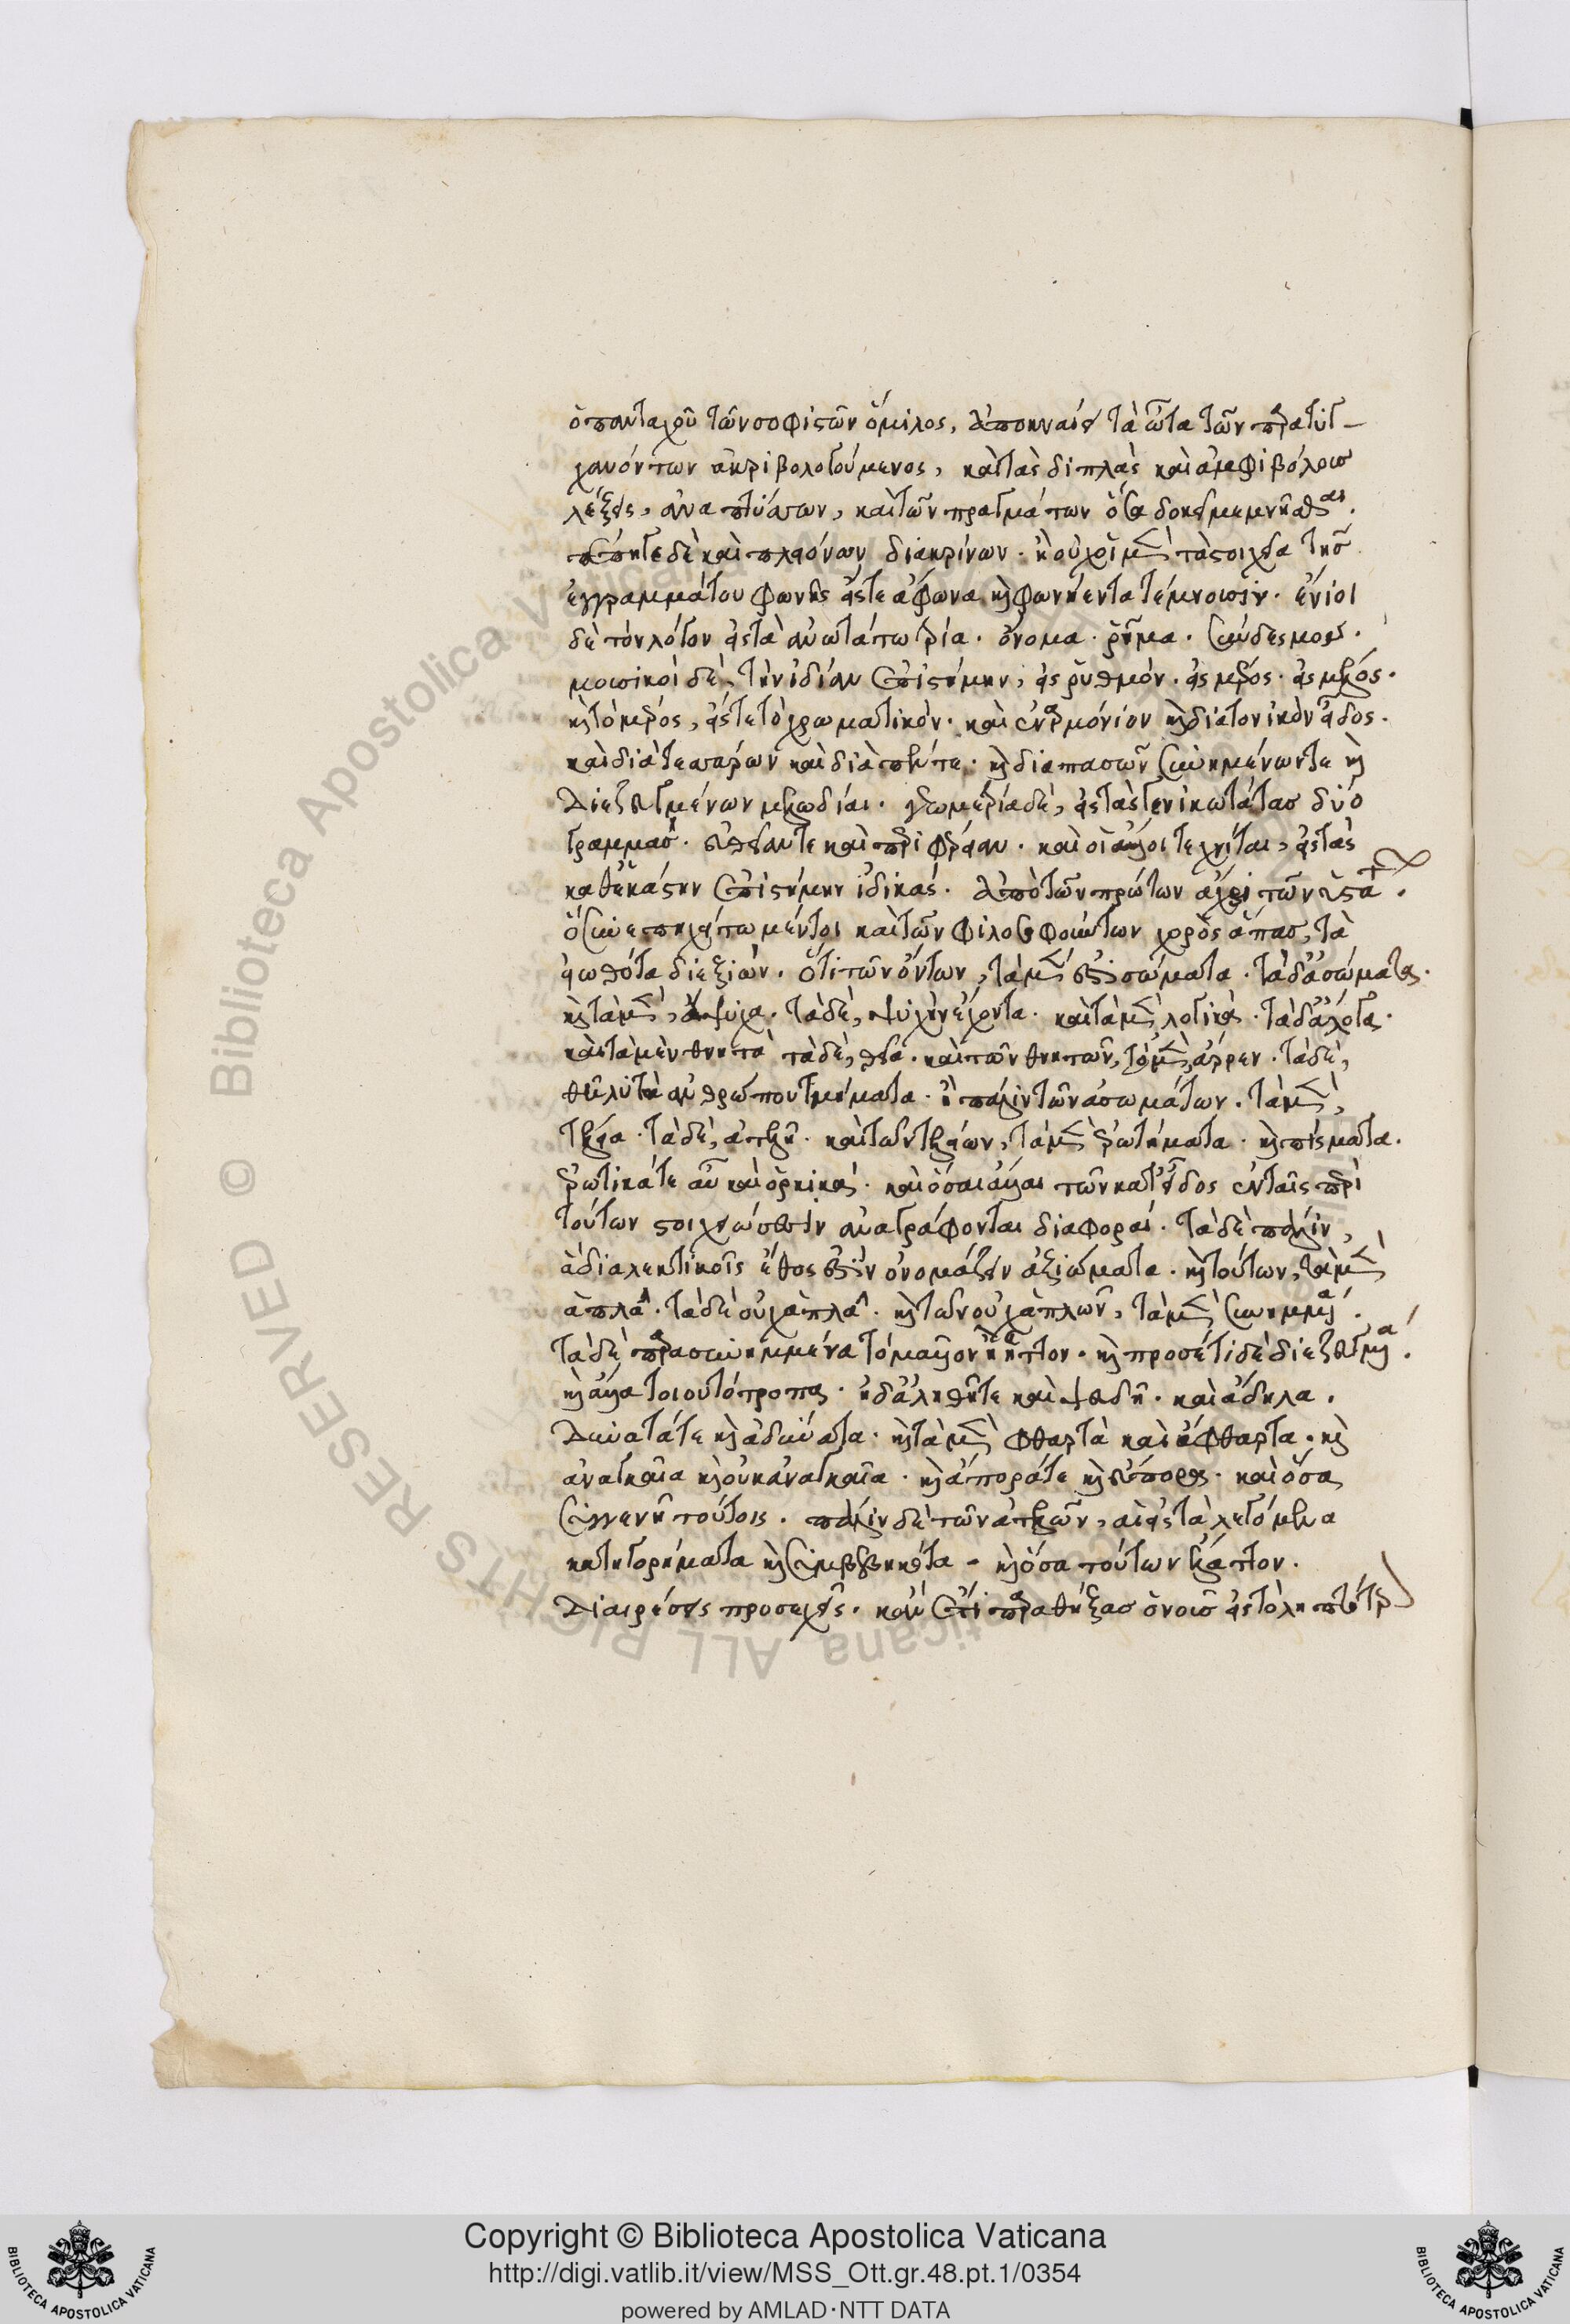 ὁ πανταχοῦ τῶν σοφιστῶν ὅμιλος, ἀποκναίει τὰ ὦτα τῶν παρατυγ-
χανόντων ἀκριβολογούμενος, καὶ τὰς διπλᾶς καὶ ἀμφιβόλους
λέξεις, ἀναπτύσσων, καὶ τῶν πραγμάτων ὅσα δοκεῖ μεμνῆσθαι.
δὲ καὶ πλειόνων διακρίνων. ἢ οὐχ οἱ μὲν τὰ στοιχεῖα τῆς
ἐγγραμμάτου φωνῆς εἴς τε ἄφωνα καὶ φωνήεντα τέμνουσιν. ἔνιοι
δὲ τὸν λόγον εἰς τὰ ἀνωτάτω τρία. ὄνομα. ῥῆμα. σύνδεσμον.
μουσικοὶ δὲ, τὴν ἰδίαν ἐπιστήμην, εἰς ῥυθμόν. εἰς μέτρος. εἰς μέλος.
καὶ τὸ μέλος, εἴς τε τὸ χρωματικὸν. καὶ ἐναρμόνιον καὶ διάτονικὸν εἶδος.
καὶ διὰ τεσσάρων καὶ διὰ πέντε. καὶ διαπασῶν συνημμένων τε καὶ
διεζευγμένων μελωδίαι. γεωμετρία δὲ, εἰς τὰς γενικωτάτας δύο
γραμμὰς. εὐθεῖαν τε καὶ περιφέρειαν. καὶ οἱ ἄλλοι τεχνῖται, εἰς τὰς
καθ' ἑκάστην ἐπιστήμην ἰδικάς. ἀπὸ τῶν πρώτων ἄχρι τῶν ὑστάτων.
μέντοι καὶ τῶν φιλοσοφούντων χορὸς ἅπας, τὰ
εἰωθότα διεξιών. ὅτι τῶν ὄντων, τὰ μὲν ἐστι σώματα. τὰ δ' ἀσώματα.
καὶ τὰ μὲν, ἄψυχα. τὰ δὲ, ψυχὴν ἔχοντα. καὶ τὰ μὲν λογικὰ. τὰ δ' ἄλογα.
καὶ τὰ μὲν θνητὰ τὰ δὲ, θεῖα. καὶ τῶν θνητῶν, τὸ μὲν ἄρρεν. τὰ δὲ,
θῆλυ τὰ ἀνθρώπου τμήματα. καὶ πάλιν τῶν ἀσωμάτων. τὰ μὲν,
τέλεια. τὰ δὲ, ἀτελῆ. καὶ τῶν τελείων, τὰ μὲν ἐρωτήματα. καὶ πύσματα.
ἀρωτικά τε αὖ καὶ ὁρκικά. καὶ ὅσαι ἄλλαι τῶν κατ' εἶδος ἐν ταῖς περὶ
τούτων στοιχειώσεσιν ἀναγράφονται διαφοραί. τὰ δὲ πάλιν,
ἃ διαλεκτικοῖς ἔθος ἐστὶν ὀνομάζειν ἀξιώματα. καὶ τούτων, τὰ μὲν
ἁπλᾶ. τὰ δὲ οὐχ ἁπλᾶ. καὶ τῶν οὐχ ἁπλῶν, τὰ μὲν συνημμένα.
τὰ δὲ παρασυνημμένα τὸ μᾶλλον ἢ ἧττον. καὶ προσέτι δὲ διεζευγμένα.
καὶ ἄλλα τοιουτότροπα. ἢ δ' ἀληθῆ τε καὶ ψευδῆ. καὶ ἄδηλα.
δυνατά τε καὶ ἀδύνατα. καὶ τὰ μὲν φθαρτὰ καὶ ἄφθαρτα. καὶ
ἀναγκαῖα καὶ οὐκ ἀναγκαῖα. καὶ ἄπορά τε καὶ εὔπορα. καὶ ὅσα
συγγενῆ τούτοις. πάλιν δὲ τῶν ἀτελῶν, αἱ εἰς τὰ λεγόμενα
κατηγορήματα καὶ συμβεβηκότα. καὶ ὅσα τούτων ἐλάττον.
διαιρέσεις προσεχεῖς. κἂν ἔτι παραθήξας ὁ νοῦς